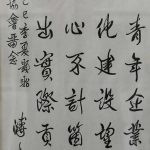 青年企業
化建設望
心不計箇
出實際貢
己巳季夏
協會留念